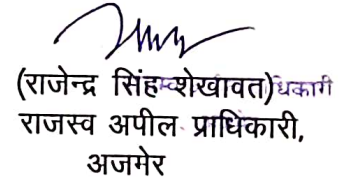 (राजेन्द्र सिंह शेखावत)धिकारी
राजस्व अपील प्राधिकारी,
अजमेर